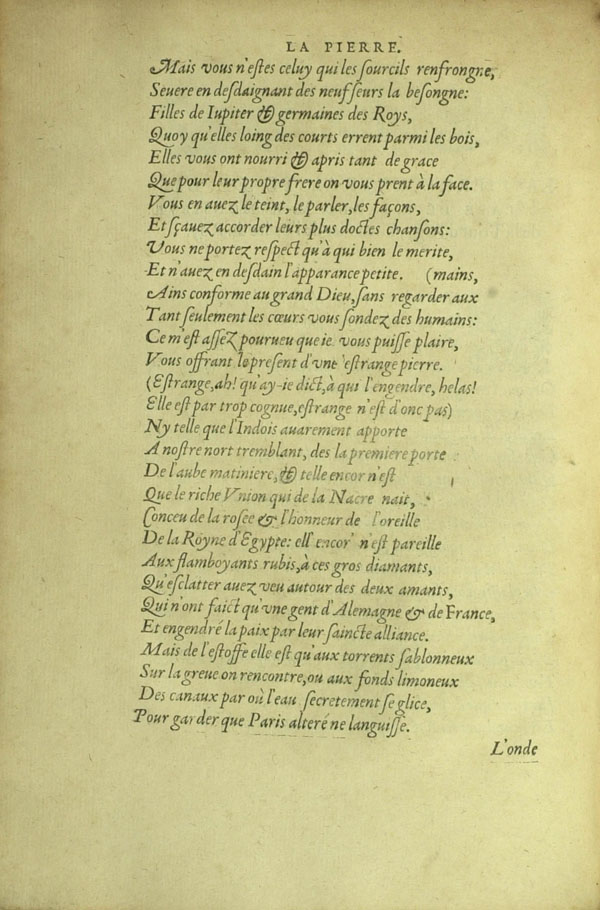 LA PIERRE.
Mais vous n'estes celuy qui les sourcils renfrongne,
Seuere en desdaignant des neuf seurs la besongne:
Filles de Iupiter & germaines des Roys,
Quoy qu'elles loing des courts errent parmi les bois,
Elles vous ont nourri & apris tant de grace
Que pour leur propre frere on vous prent à la face.
Vous en auez le teint, le parler, les façons,
Et sçauez accorder leurs plus doctes chansons:
Vous ne portez respect qu'à qui bien le merite,
Et n'auez en desdain l'apparance petite. (mains,
Ains conforme au grand Dieu, sans regarder aux
Tant seulement les cœurs vous sondez des humains:
Ce m'est assez pourueu que ie vous puisse plaire,
Vous offrant le present d'vne estrange pierre.
(Estrange, ah! qu'ay-ie dict, à qui l'engendre, helas!
Elle est par trop cognue, estrange n'est d'onc pas)
Ny telle que l'Indois auarement apporte
A nostre nort tremblant, des la premiere porte
De l'aube matiniere, & telle encor n'est
Que le riche Vnion qui de la Nacre nait,
Conceu de la rosee & l'honneur de l'oreille
De la Royne d'Egypte: ell' encor' n'est pareille
Aux flamboyants rubis, à ces gros diamants,
Qu'esclatter auez veu autour des deux amants,
Qui n'ont faict qu'vne gent d'Alemagne & de France,
Et engendré la paix par leur saincte alliance.
Mais de l'estoffe elle est qu'aux torrents sablonneux
Sur la greue on rencontre, ou aux fonds limoneux
Des canaux par où l'eau secretement se glice,
Pour garder que Paris alteré ne languisse.
L'onde